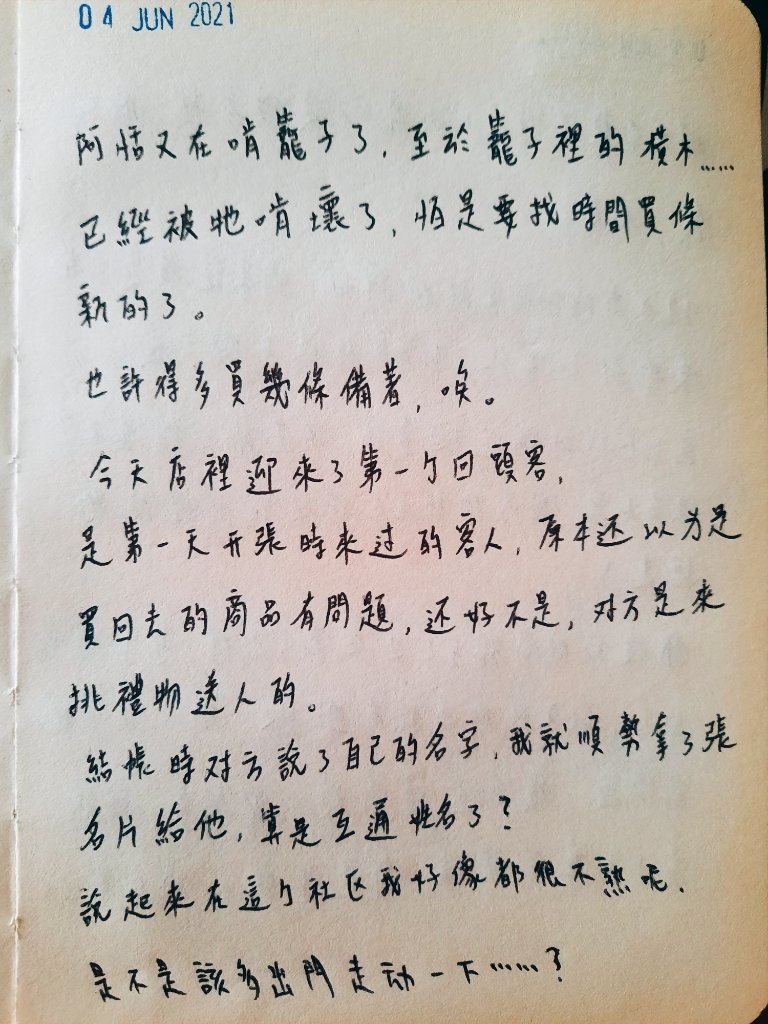 04 JUN 2021
阿恬又在啃籠子了，至於籠子裡的積木……
已經被牠啃壞了，怕是要找時間買條
新的了。
也許得多買幾條備著，唉。
今天店裡迎來了第一个回頭客，
是第一天开張時來过的客人，原本还以为是
買回去的商品有問題，还好不是，对方是來
挑禮物送人的。
結帳時对方說了自己的名字，我就順勢拿了張
名片給他，算是互通姓名了？
說起來在這个社区我好像都很不熟呢，
是不是該多出門走动一下……？